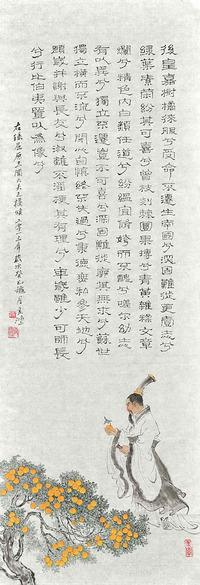 後皇嘉樹橘徠服兮受命不遷生南國兮深固難徙更壹志兮
綠葉素榮紛其可喜兮曾枝剡棘圓果摶兮青黃雜糅文章
爛兮精色內白類任道兮紛緼宜脩姱而不醜兮嗟爾幼志
有以異兮獨立不遷豈不可喜兮深固難徙廓其無求兮蘇世
獨立橫而不流兮閉心自慎終不失過兮秉德無私參天地兮
願歲并謝與長友兮淑離不淫梗其有理兮年歲雖少可師長
兮行比伯夷置以為像兮
右錄屈原